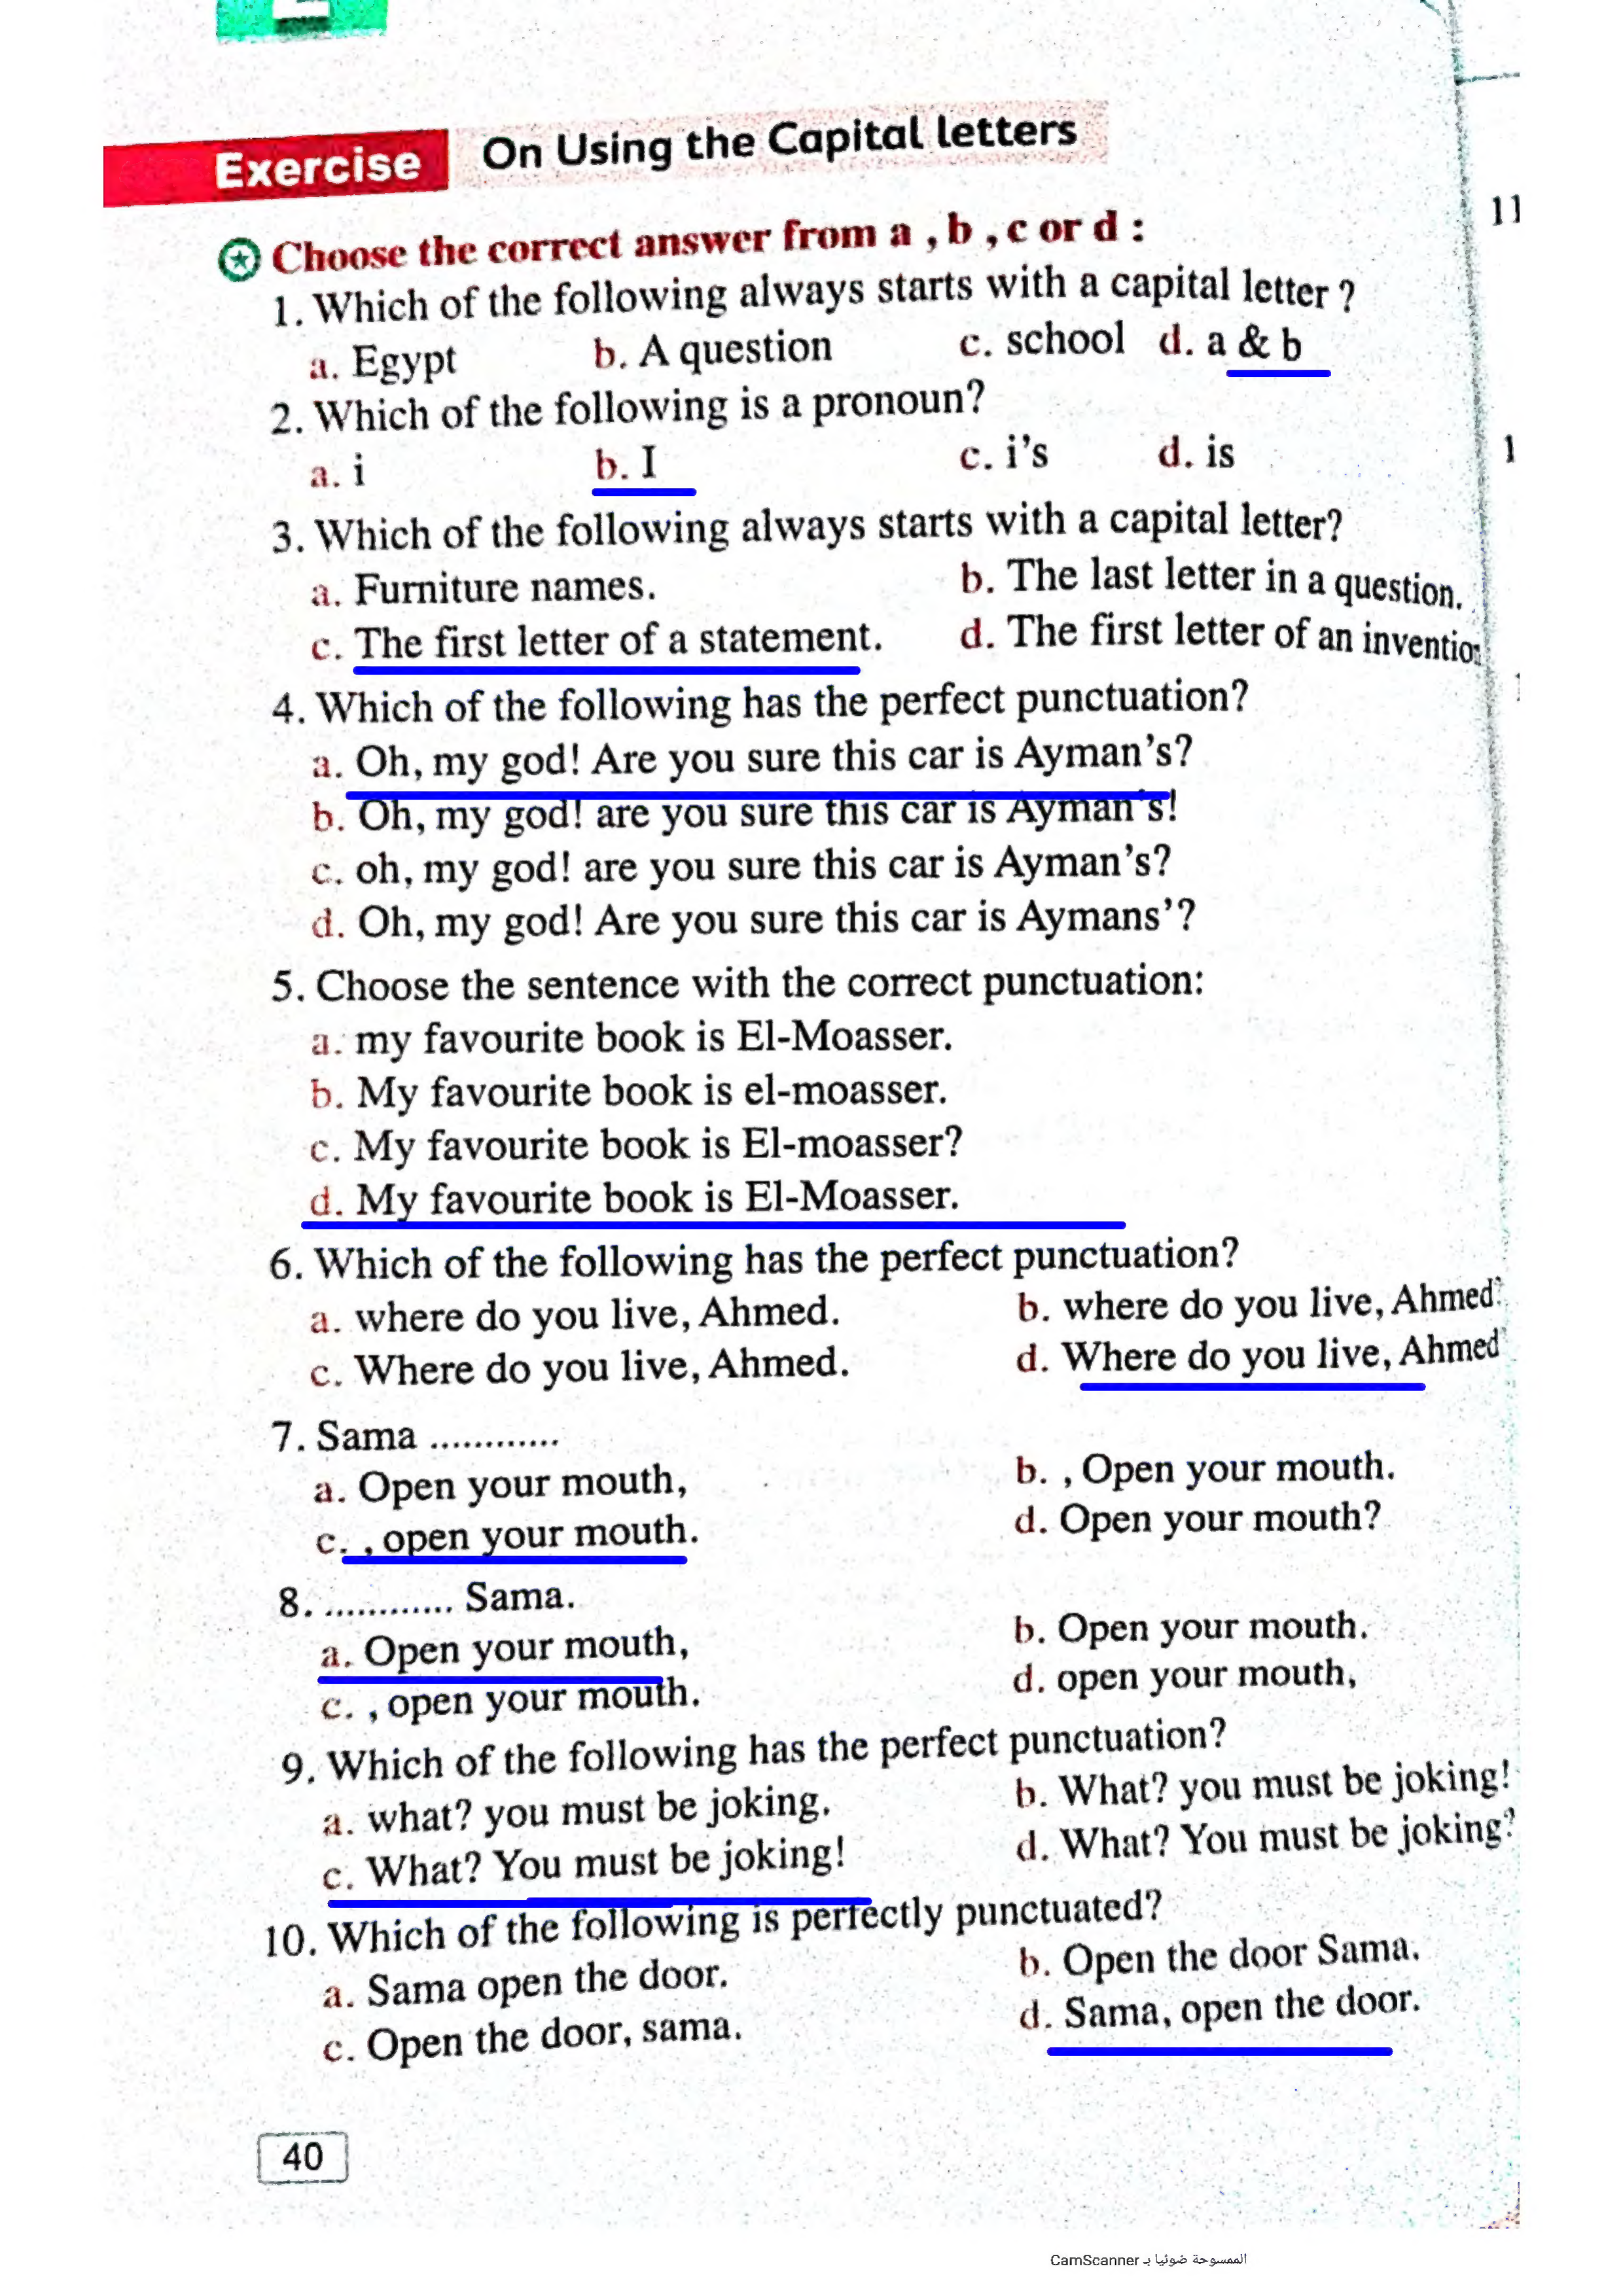 Exercise On Using the Capital letters
Choose the correct answer from a , b , c or d :
11
1. Which of the following always starts with a capital letter ?
a. Egypt b. A question c. school d. a & b
2. Which of the following is a pronoun?
a. i b. I c. i's d. is
1
3. Which of the following always starts with a capital letter?
a. Furniture names. b. The last letter in a question.
c. The first letter of a statement. d. The first letter of an
4. Which of the following has the perfect punctuation?
a. Oh, my god! Are you sure this car is Ayman's?
b. Oh, my god! are you sure this car is Ayman's!
c. oh, my god! are you sure this car is Ayman's?
d. Oh, my god! Are you sure this car is Aymans'?
5. Choose the sentence with the correct punctuation:
a. my favourite book is El-Moasser.
b. My favourite book is el-moasser.
c. My favourite book is El-moasser?
d. My favourite book is El-Moasser.
6. Which of the following has the perfect punctuation?
a. where do you live, Ahmed. b. where do you live, Ahmed?
c. Where do you live, Ahmed. d. Where do you live, Ahmed
7. Sama ............
a. Open your mouth, b. , Open your mouth.
c. , open your mouth. d. Open your mouth?
8. ............ Sama.
a. Open your mouth, b. Open your mouth.
c. , open your mouth. d. open your mouth,
9. Which of the following has the perfect punctuation?
a. what? you must be joking. b. What? you must be joking!
c. What? You must be joking! d. What? You must be joking?
10. Which of the following is perfectly punctuated?
a. Sama open the door. b. Open the door Sama.
c. Open the door, sama. d. Sama, open the door.
40
الممسوحة ضوئيا بـ CamScanner